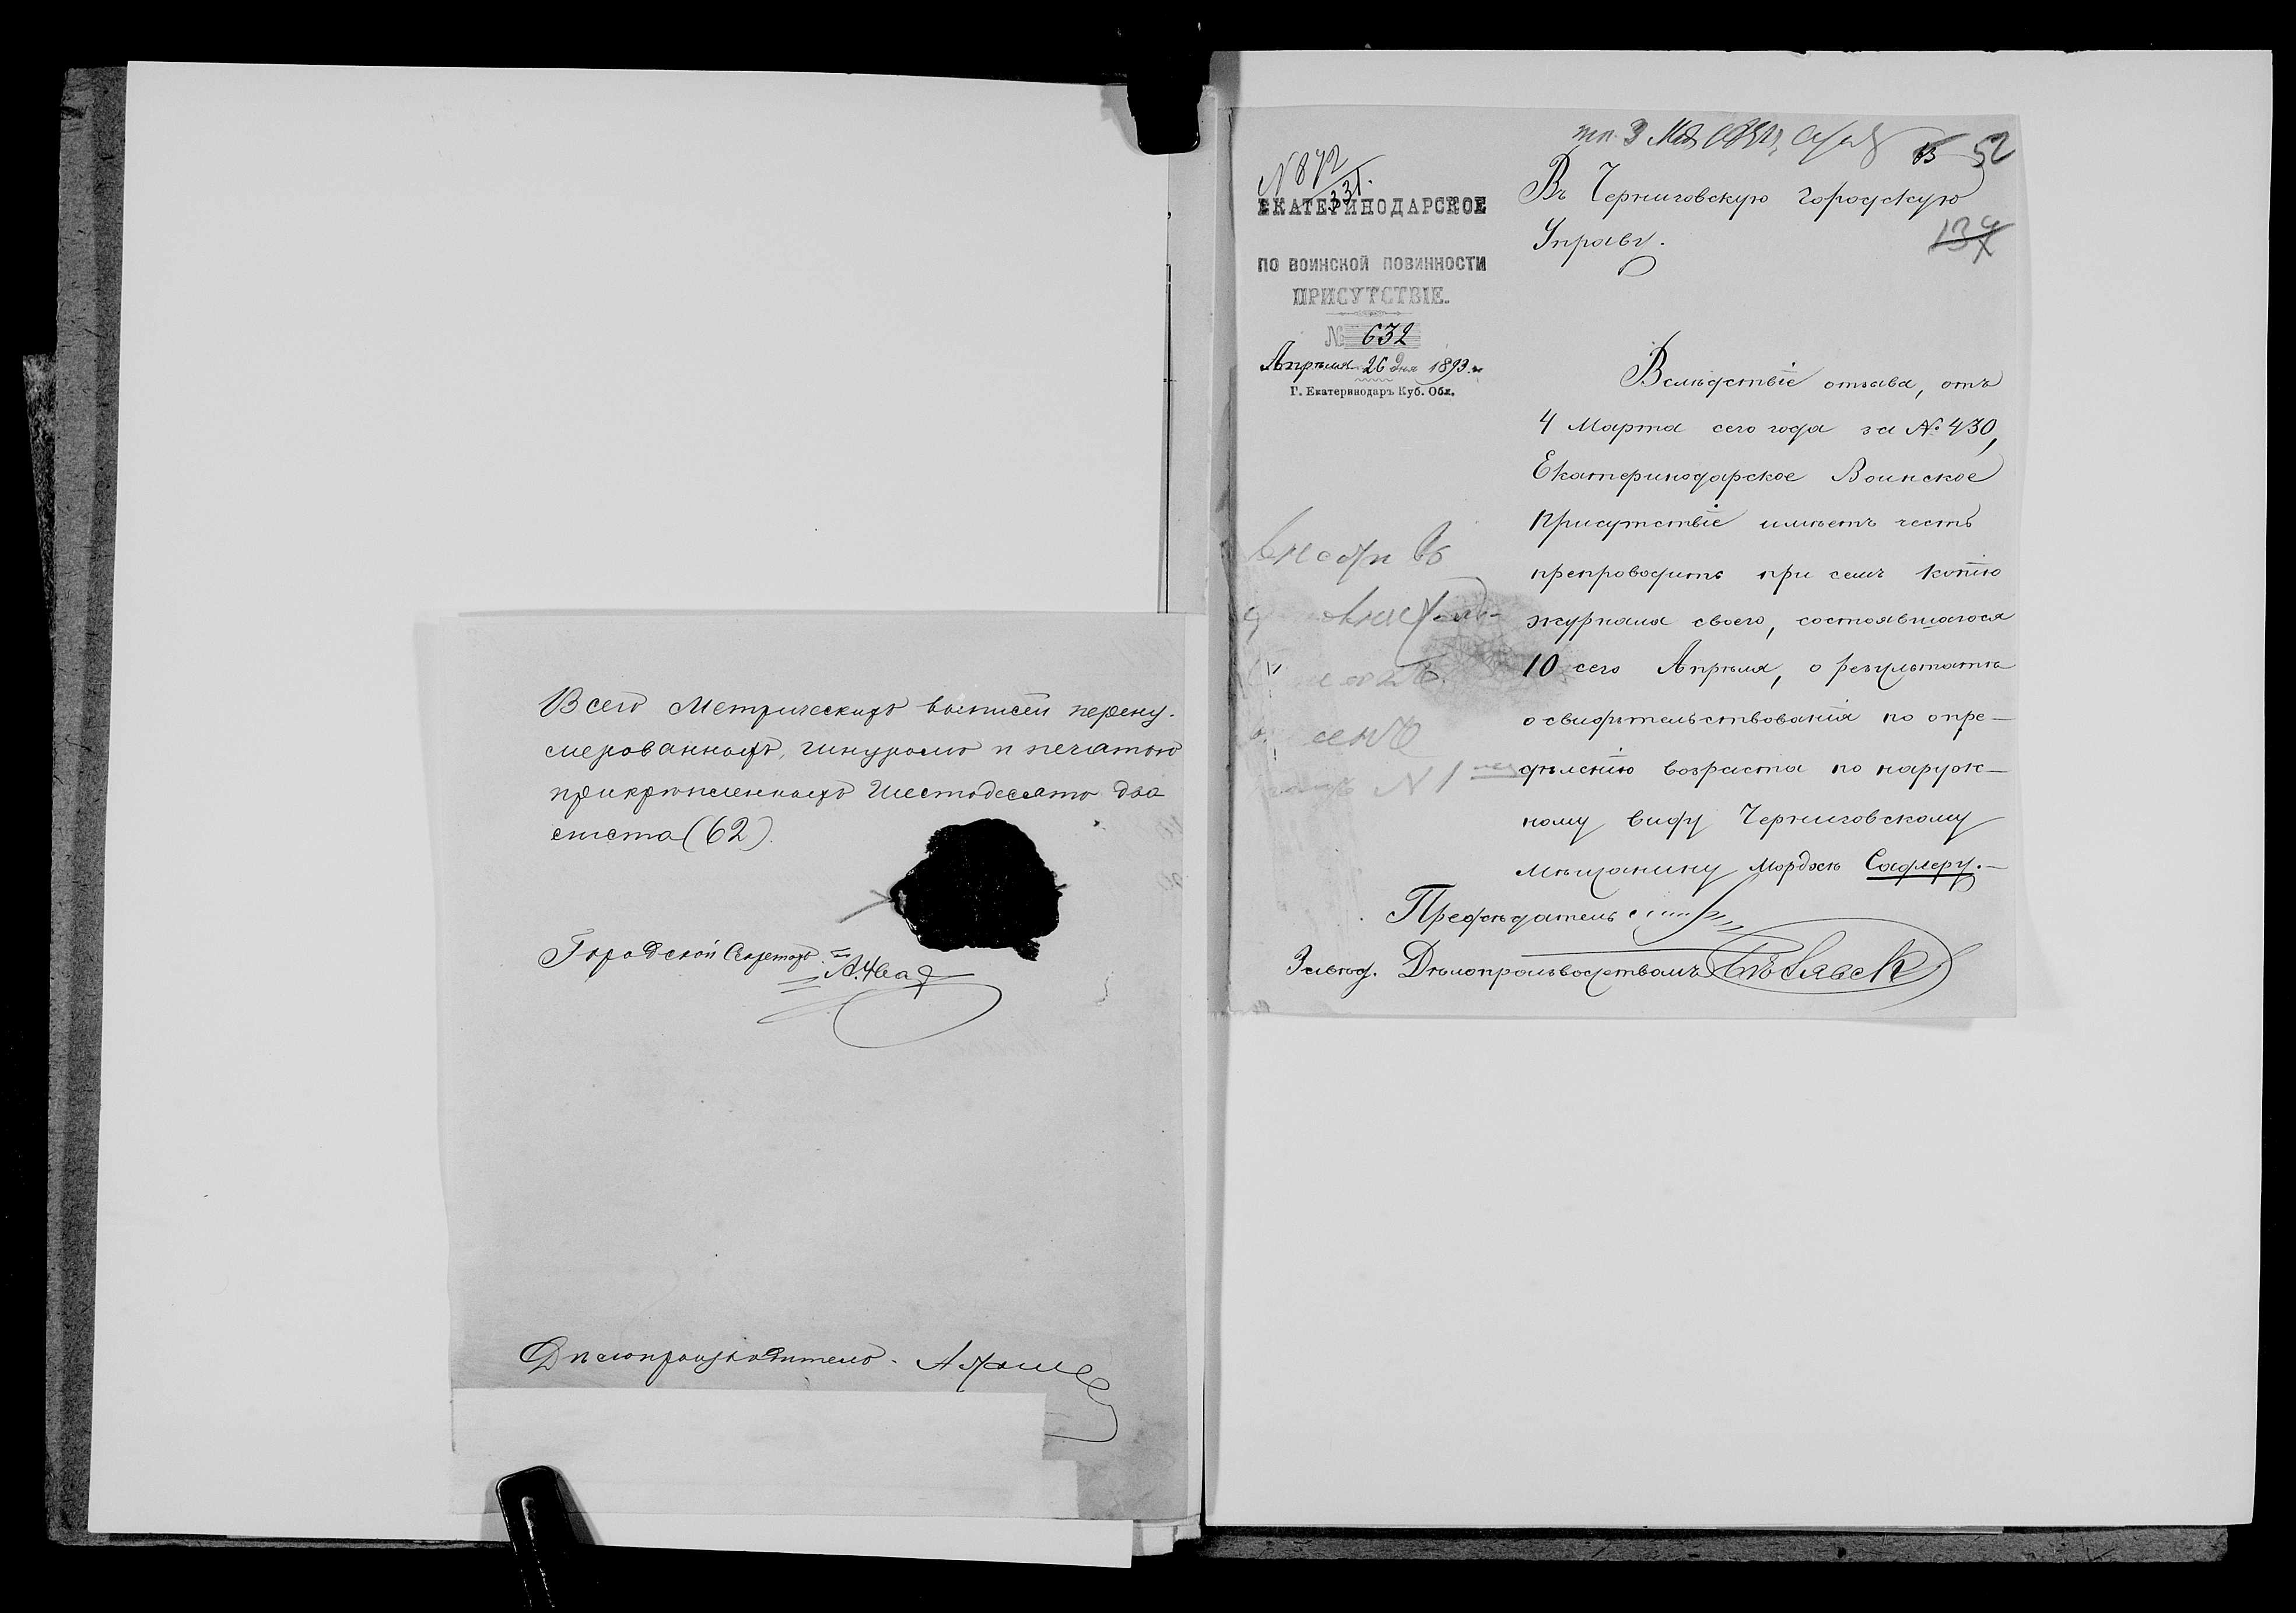 Всего Метрическихъ выписей перену-
мерованныхъ, шнуромъ и печатью
прикрѣпленныхъ Шестьдесятъ два
листа (62).
Городской Секретарь
Дѣлопроизводитель
N 872/331.
ЕКАТЕРИНОДАРСКОЕ
ПО ВОИНСКОЙ ПОВИННОСТИ
ПРИСУТСТВІЕ.
№ 632
Апрѣля 26 дня 1893 г.
Г. Екатеринодаръ Куб. Обл.
пол. 3 Мая
52
Въ Черниговскую Городскую
Управу.
137
Вслѣдствіе отзыва, отъ
4 Марта сего года за № 430,
Екатеринодарское Воинское
Присутствіе имѣетъ честь
препроводить при семъ копію
журнала своего, состоявшагося
10 сего Апрѣля, о результатѣ
освидѣтельствованія по опре-
дѣленію возраста по наруж-
ному виду Черниговскому
мѣщанину Мордхѣ Садлеру.
Предсѣдатель
Завѣд. Дѣлопроизводствомъ
N 1